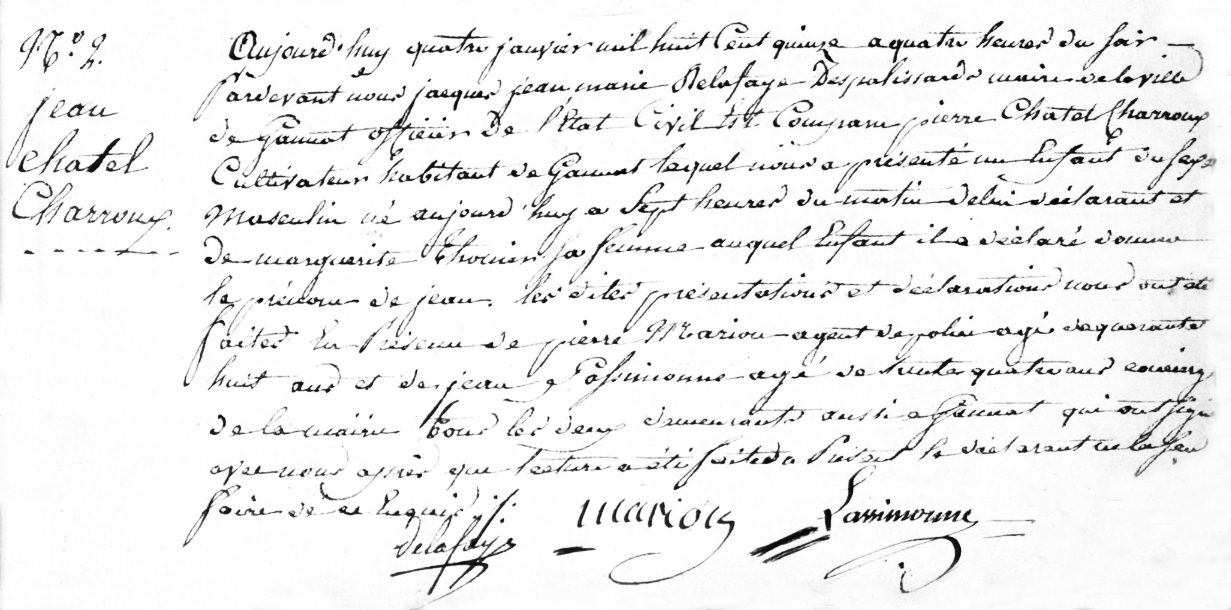 N.º 2.
jean
chatel
Charroux.
Aujourd'huy quatre janvier mil huit Cent quinze a quatre heures du soir
Pardevant nous jacques jean marie Delafaye Despalissards maire de la ville
de Gannat officier De l'Etat Civil Est Comparu pierre Chatel Charroux
Cultivateur habitant de Gannat lequel nous a présenté un Enfant du sexe
Masculin né aujourd'huy a Sept heures du matin de lui déclarant et
de marguerite Thonier sa femme auquel Enfant il a déclaré donner
le prénom de jean. les dites présentations et déclarations nous ont été
faites En Présence de pierre Marion agent de police agé de quarante
huit ans et de jean Lassimonne agé de trente quatre ans concierge
de la mairie tous les deux demeurants aussi a Gannat qui ont signé
avec nous après que lecture a été faite du Présent le déclarant ne la seu
faire de ce Enquis ./.
Delafaye marion Lassimonne